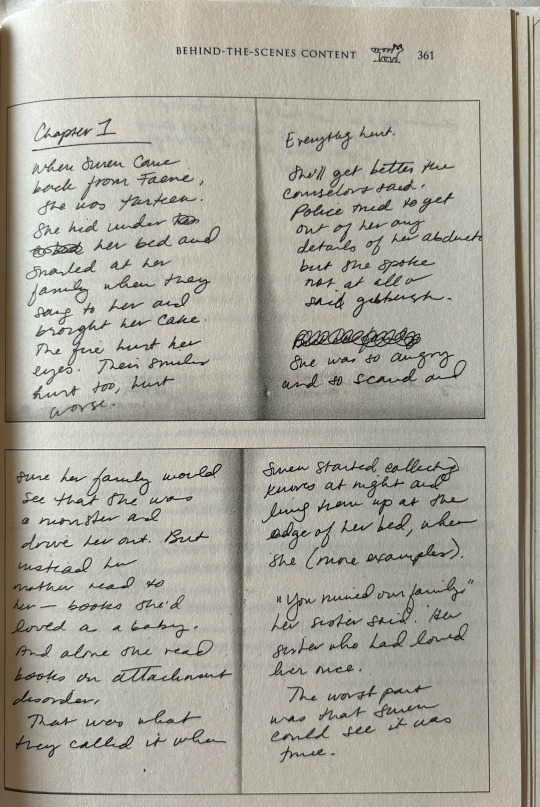 BEHIND-THE-SCENES CONTENT 361
Chapter 1
When Suren came
back from Faerie,
She was thirteen.
She hid under
her bed and
snarled at her
family when they
sang to her and
brought her cake.
The fire hurt her
eyes. Their smiles
hurt too, hurt
worse.
Everything hurt.
She'll get better the
counselors said.
Police tried to get
out of her any
details of her abduct
but she spoke
not at all or
said gibberish.
She was so angry
and so scared and
sure her family would
see that she was
a monster and
drive her out. But
instead her
mother read to
her — books she'd
loved as a baby.
And alone she read
books on attachment
disorder.
That was what
they called it when
Suren started collecting
knives at night and
lining them up at the
edge of her bed, when
she (more examples).
"You ruined our family"
her sister said. Her
sister who had loved
her once.
The worst part
was that Suren
could see it was
true.